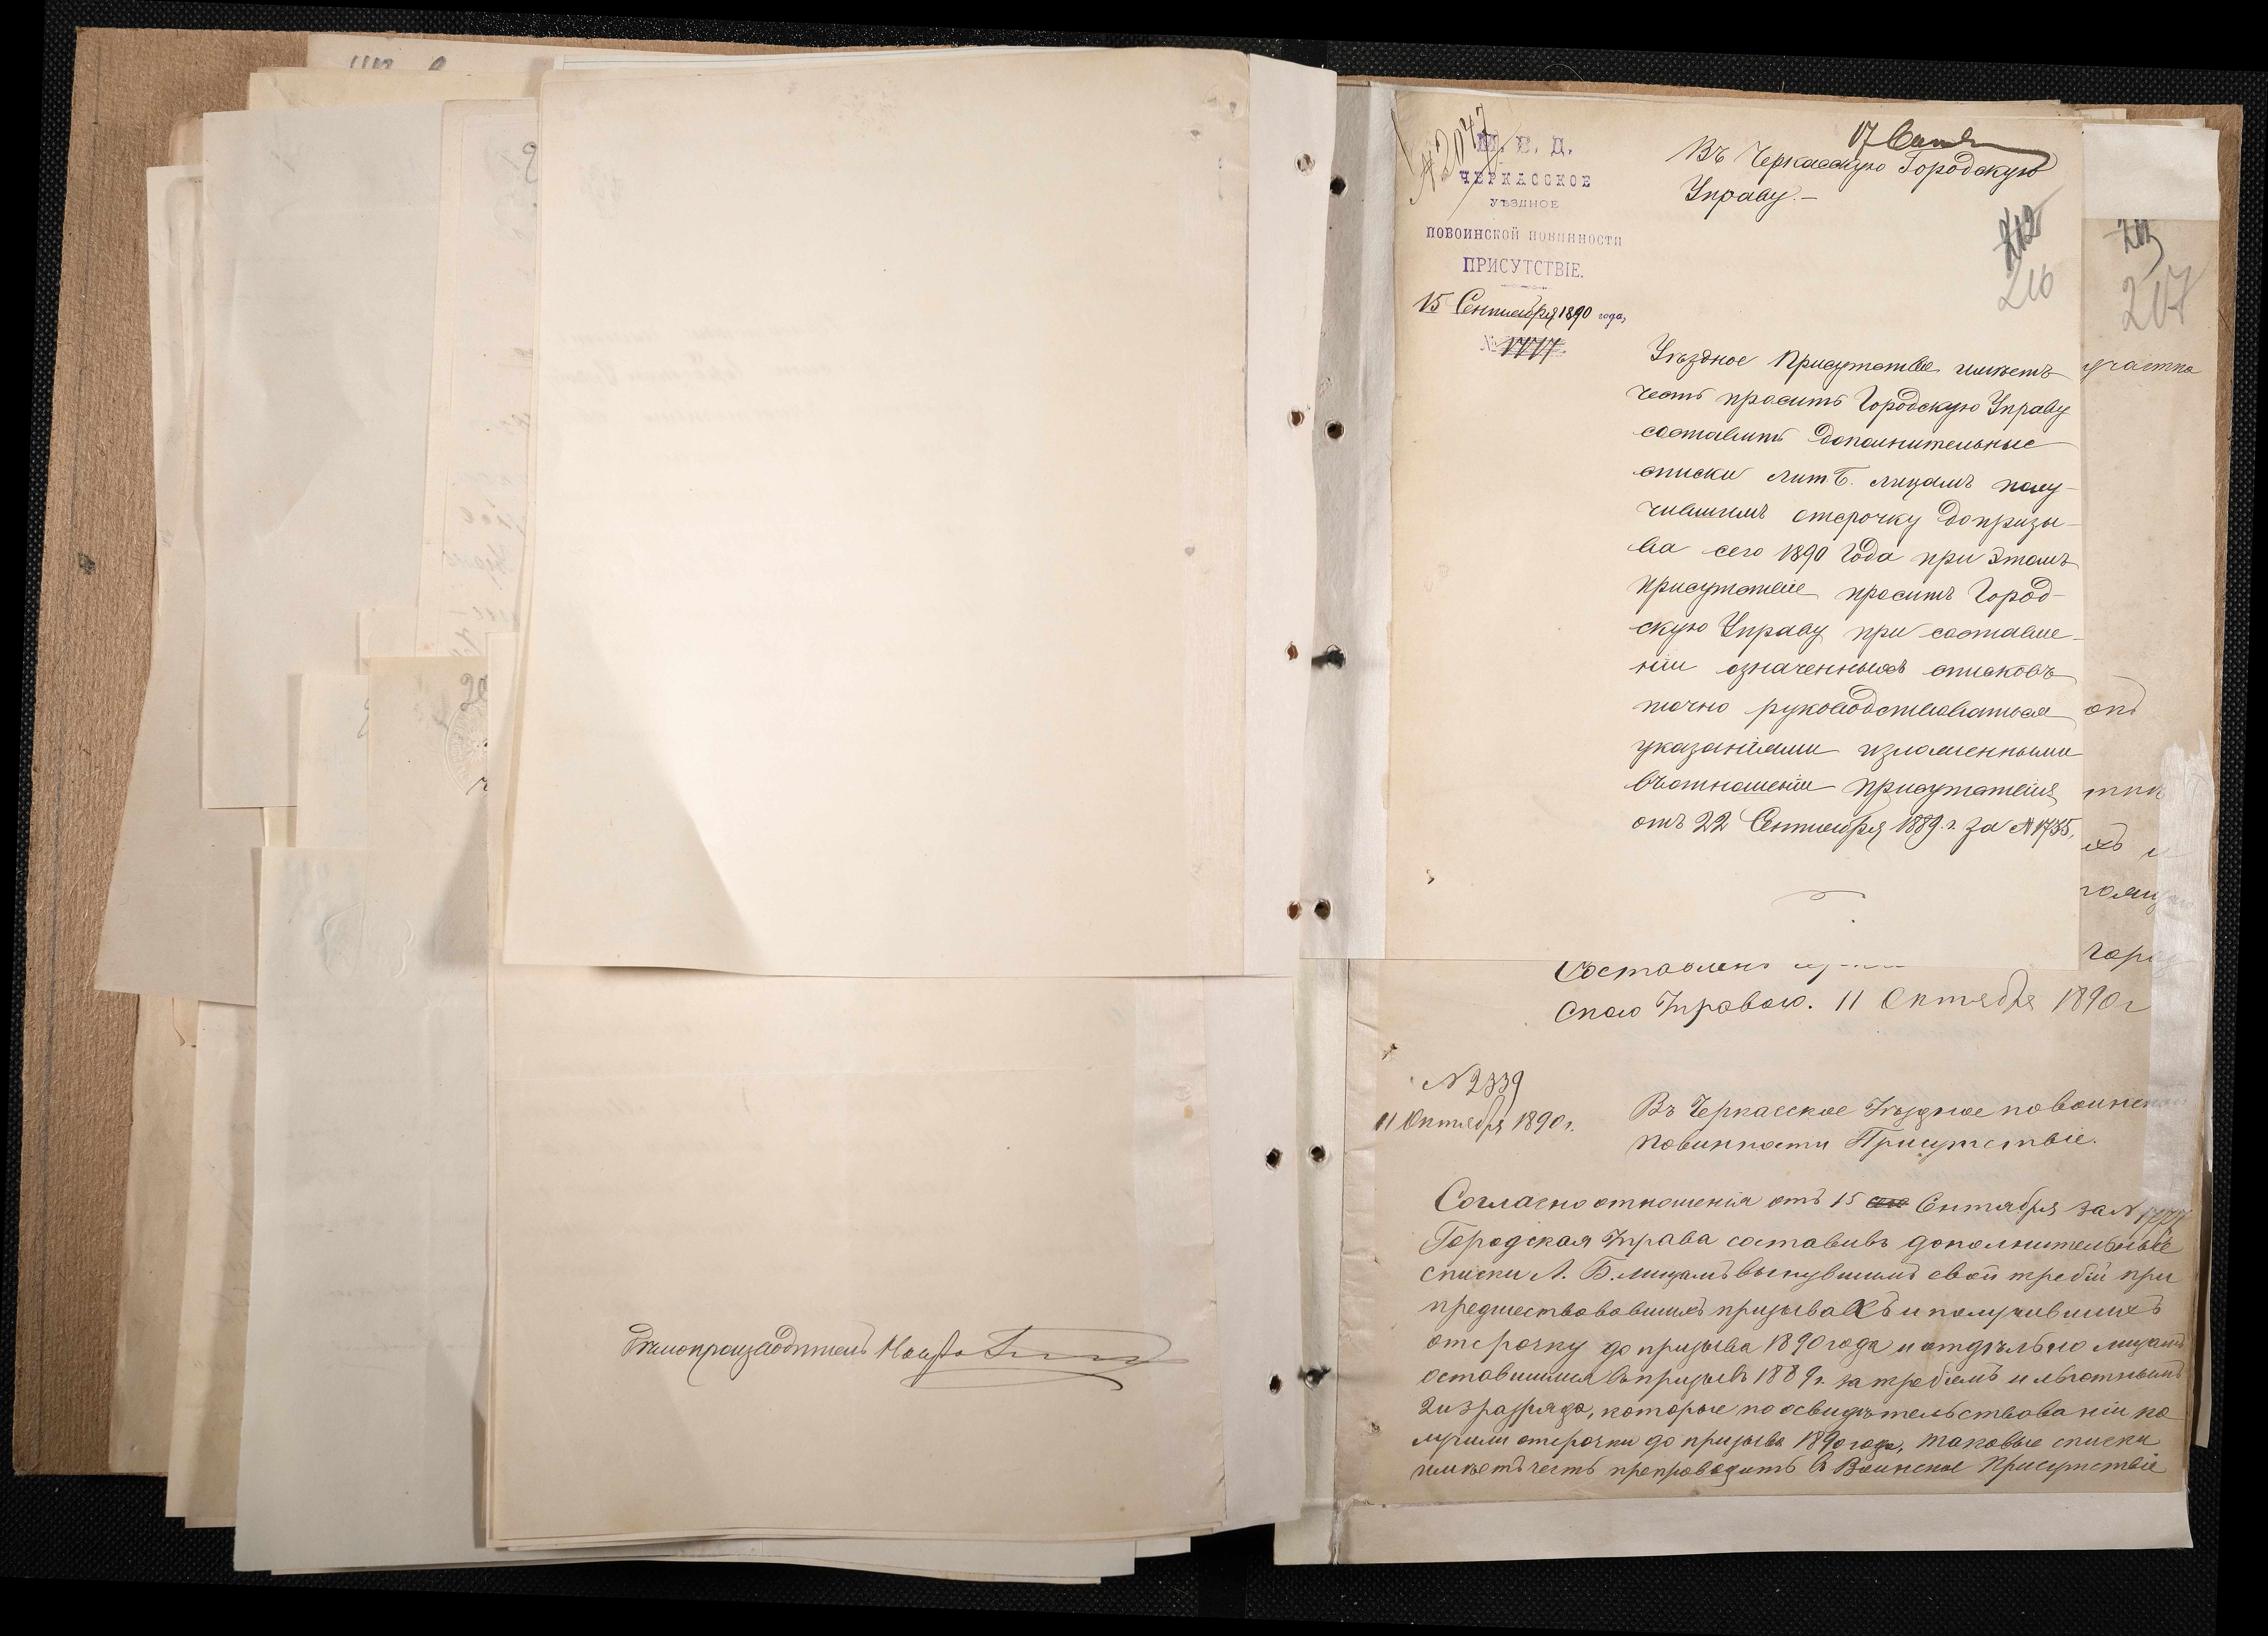 Дѣлопроизводитель
№ 2047
М. В. Д.
ЧЕРКАССКОЕ
УѢЗДНОЕ
ПОВОИНСКОЙ ПОВИННОСТИ
ПРИСУТСТВІЕ.
15 Сентября 1890 года,
№ 1777.
17 Сент
Въ Черкасскую Городскую
Управу.—
212
216
Уѣздное Присутствіе имѣетъ
честь просить Городскую Управу
составить дополнительные
списки лит. Б. лицамъ полу-
чившимъ отсрочку допризы-
ва сего 1890 года при этомъ
присутствіе проситъ Город-
скую Управу при составле-
ніи означенныхъ списковъ
точно руководствоваться
указаніями изложенными
въотношеніи присутствія
отъ 22 Сентября 1889 г. за № 1735,
217
участка
Составлено
скою Управою. 11 Октября 1890 г
№ 2339
11 Октября 1890 г.
Въ Черкасское Уѣздное повоинской
повинности Присутствіе.
Согласно отношенія отъ 15 Сентября за № 1777
Городская Управа составивъ дополнительные
списки Л. Б. лицамъ вынувшимъ свой требій при
предшествовавшихъ призывахъ и получившихъ
отсрочку до призыва 1890 года и отдѣльно лицамъ
оставшимся въ призывъ 1889 г. за требіемъ и льготнымъ
2 и 3 разряда, которые по освидѣтельствованіи по
лучили отсрочки до призыва 1890 года, таковые списки
имѣетъ честь препроводить в Воинское Присутствіе